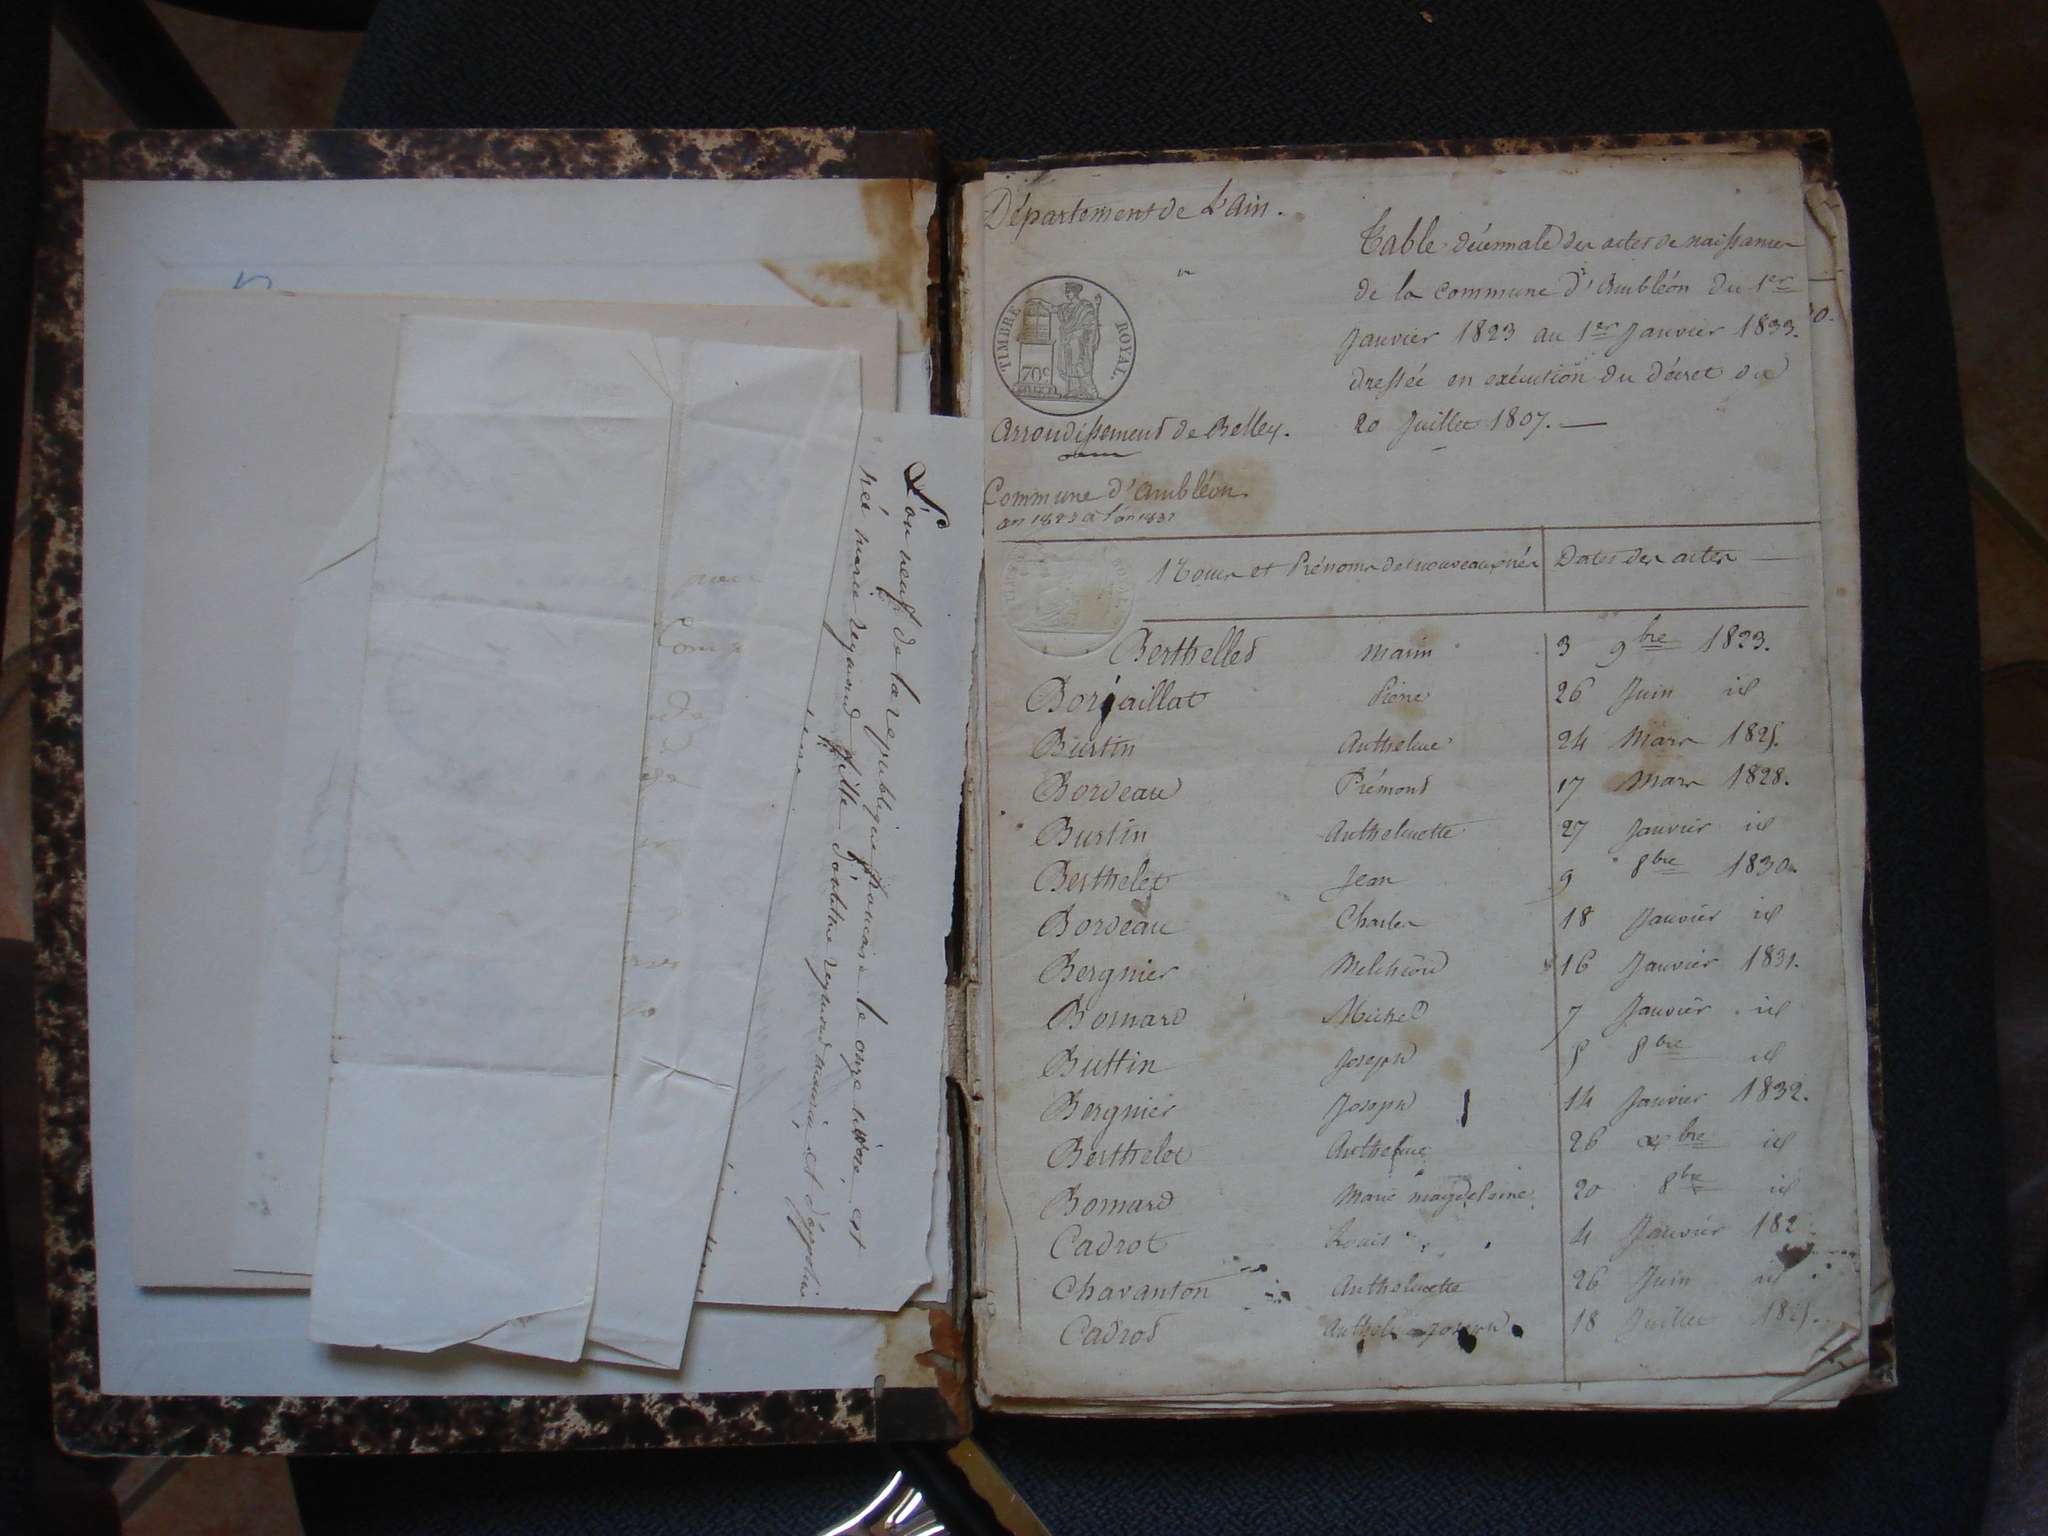 L'an neuf de la republique francaise le onze nivôse, est
née marie reynaud fille d'antelme reynaud
Département de L'Ain.
TIMBRE ROYAL.
70c
Arrondissement de Belley.
Commune d'Ambléon.
an 1823 a l'an 1832
Table décennale des actes de naissances
de la commune d'Ambléon du 1er
Janvier 1823 au 1er Janvier 1833.
dressée en exécution du décret du
20 Juillet 1807.
Noms et Prénoms des nouveaux nés Dates des actes
Berthelled Marin 3 9bre 1823.
Borjaillat Pierre 26 Juin id
Burtin Anthelme 24 Mars 1825.
Bordeau Prémond 17 Mars 1828.
Burtin Anthelmette 27 Janvier id
Berthelet Jean 9 8bre 1830
Bordeau Charles 18 Janvier id
Bergnier Melchiord 16 Janvier 1831.
Bornard Michel 7 Janvier id
Buttin Joseph 8 8bre id
Bergnier Joseph 14 Janvier 1832.
Berthelet Anthelme 26 bre id
Bornard Marie magdelaine 20 8bre id
Cadrot Louis 4 Janvier 182
Charanton Anthelmette 26 Juin id
Cadrod Joseph 18 Juillet 1825.